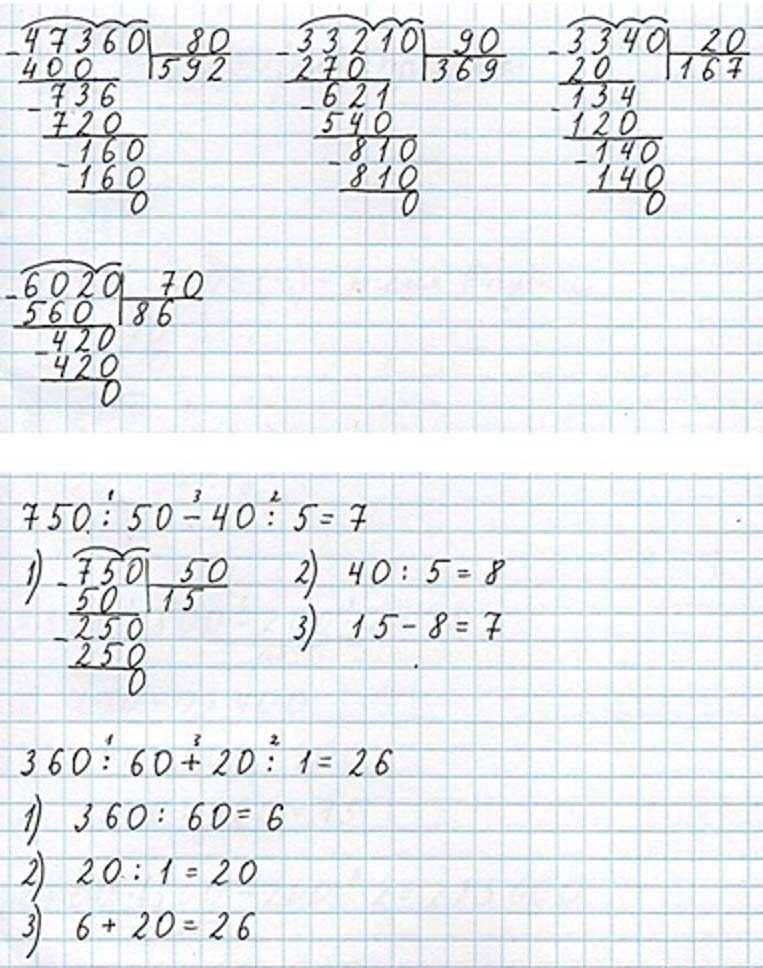 47360 80 33210 90 3340 20
400 592 270 369 20 167
736 621 134
720 540 120
160 810 140
160 810 140
0 0 0
6020 70
560 86
420
420
0
1 3 2
750 : 50 - 40 : 5 = 7
1) 750 50 2) 40 : 5 = 8
50 15
250 3) 15 - 8 = 7
250
0
1 3 2
360 : 60 + 20 : 1 = 26
1) 360 : 60 = 6
2) 20 : 1 = 20
3) 6 + 20 = 26